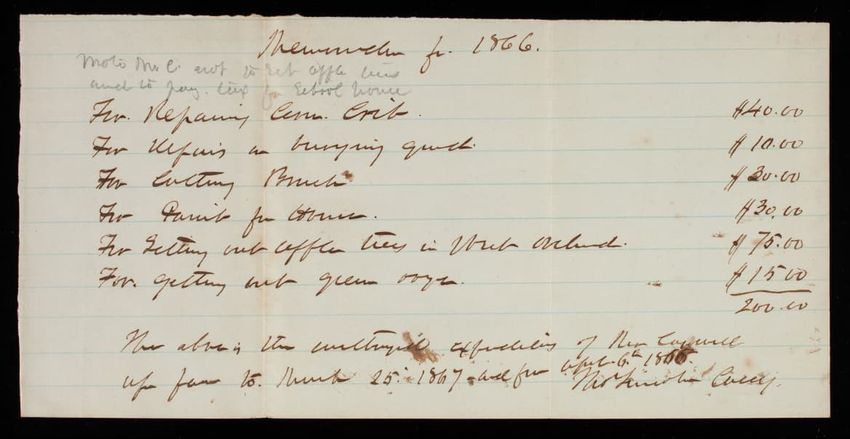 Memorandum for 1866.
Mc. not to set apple trees
and to pay tax for School house
For Repairing Corn Crib. $40.00
For Repairs on burying ground. $10.00
For Cutting Brush $30.00
For Paint for House. $30.00
For Setting out apple trees in West orchard. $75.00
For getting out green $15.00
200.00
The above is the of
up farm to March 25. 1867 and from april 6th 1866.
Thos Lincoln Casey